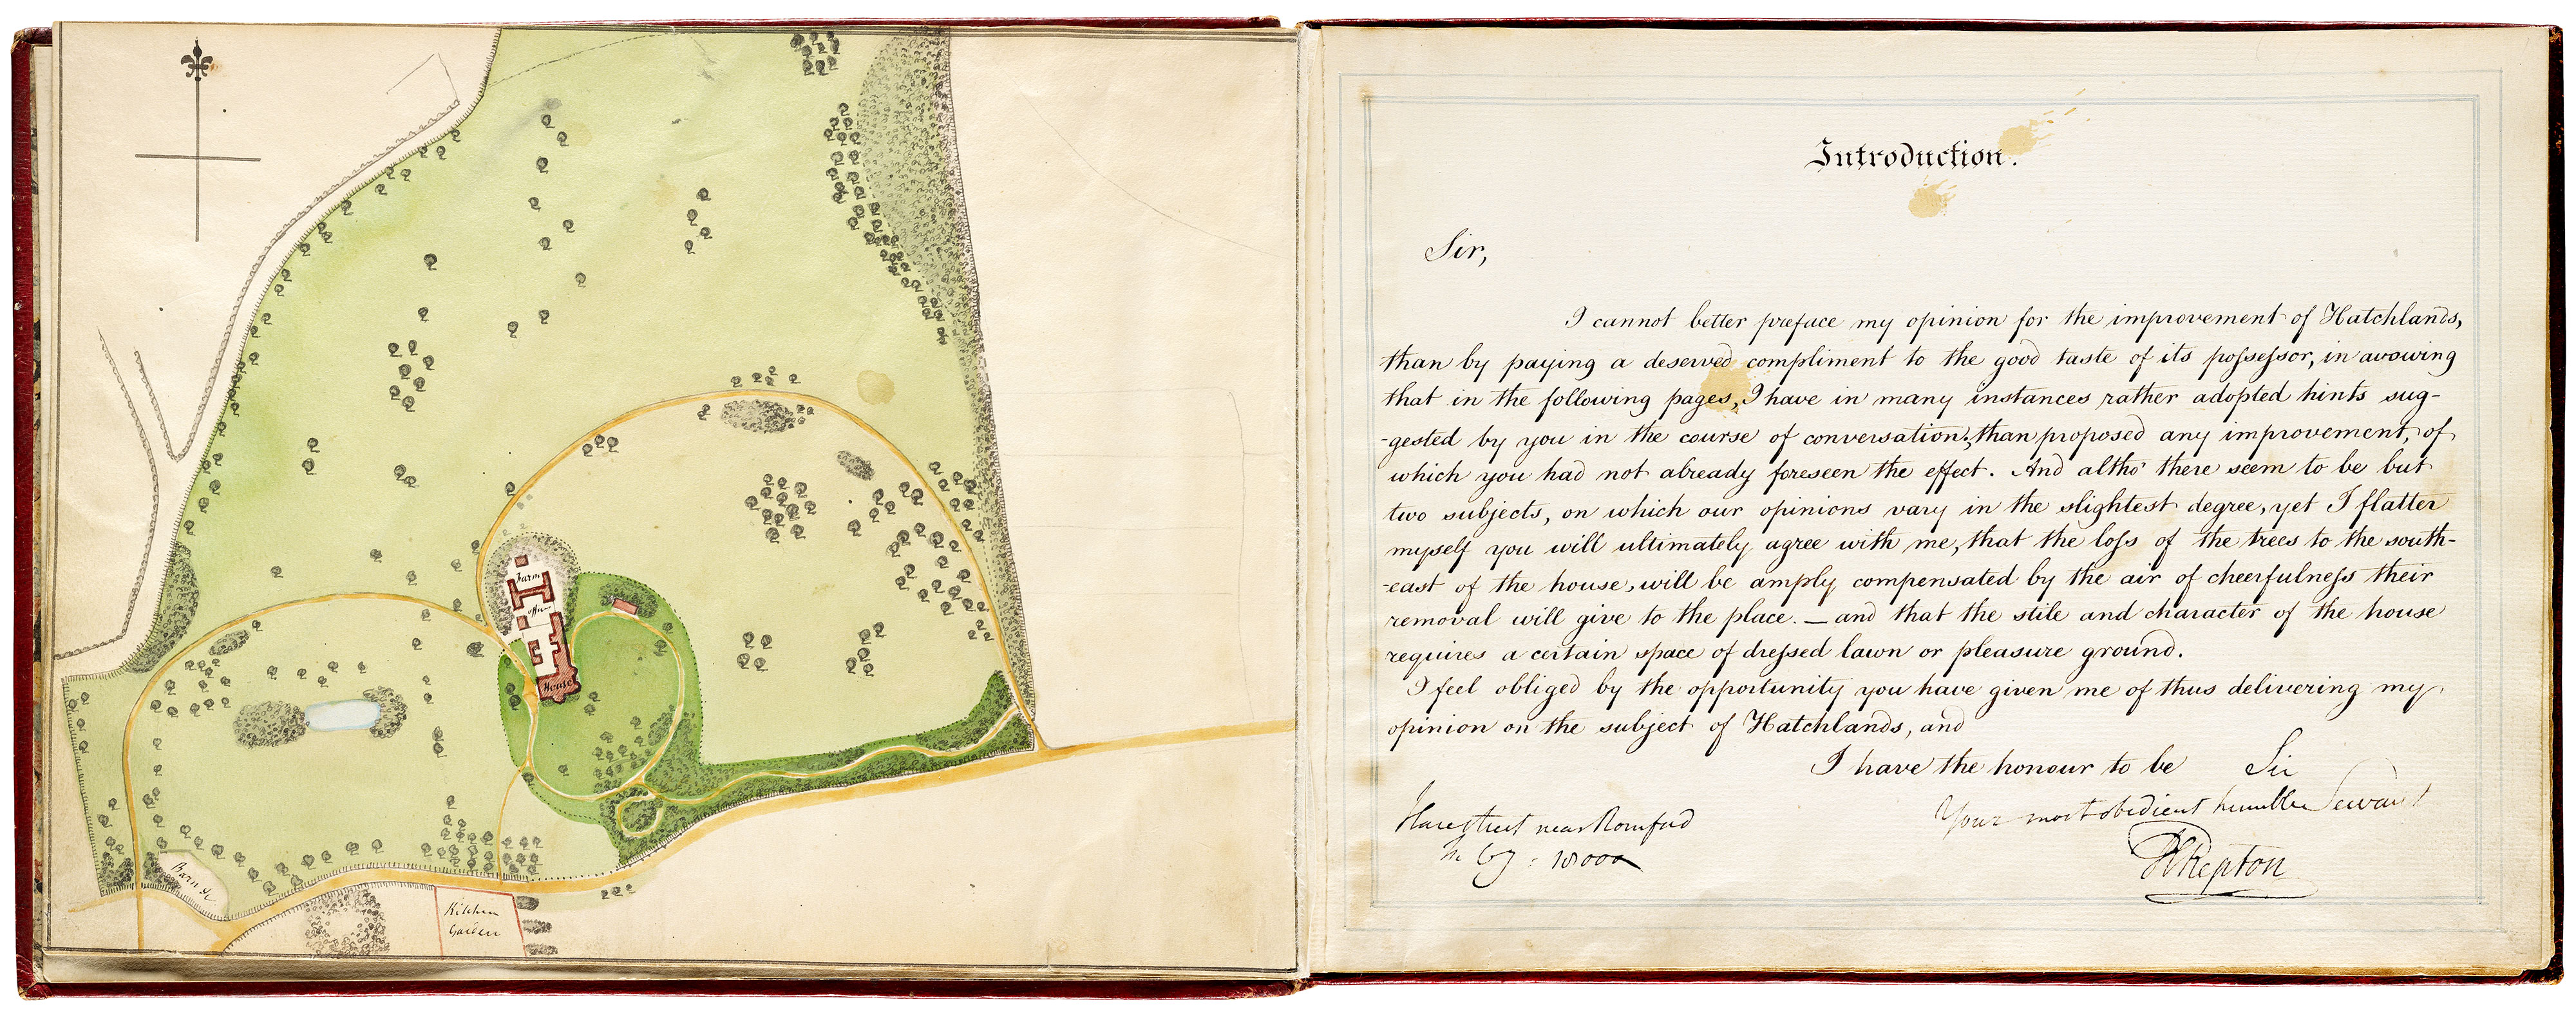 Farm
House
Barn Y.
Kitchen
Garden
Introduction.
Sir,
I cannot better preface my opinion for the improvement of Hatchlands,
than by paying a deserved compliment to the good taste of its poſseſsor, in avowing
that in the following pages, I have in many instances rather adopted hints sug-
-gested by you in the course of conversation; than proposed any improvement, of
which you had not already foreseen the effect. And altho' there seem to be but
two subjects, on which our opinions vary in the slightest degree, yet I flatter
myself you will ultimately agree with me, that the loſs of the trees to the south-
-east of the house, will be amply compensated by the air of cheerfulneſs their
removal will give to the place. — and that the stile and character of the house
requires a certain space of dreſsed lawn or pleasure ground.
I feel obliged by the opportunity you have given me of thus delivering my
opinion on the subject of Hatchlands, and
I have the honour to be Sir
Your most obedient humble Servant
Harestreet near Romford
H Repton